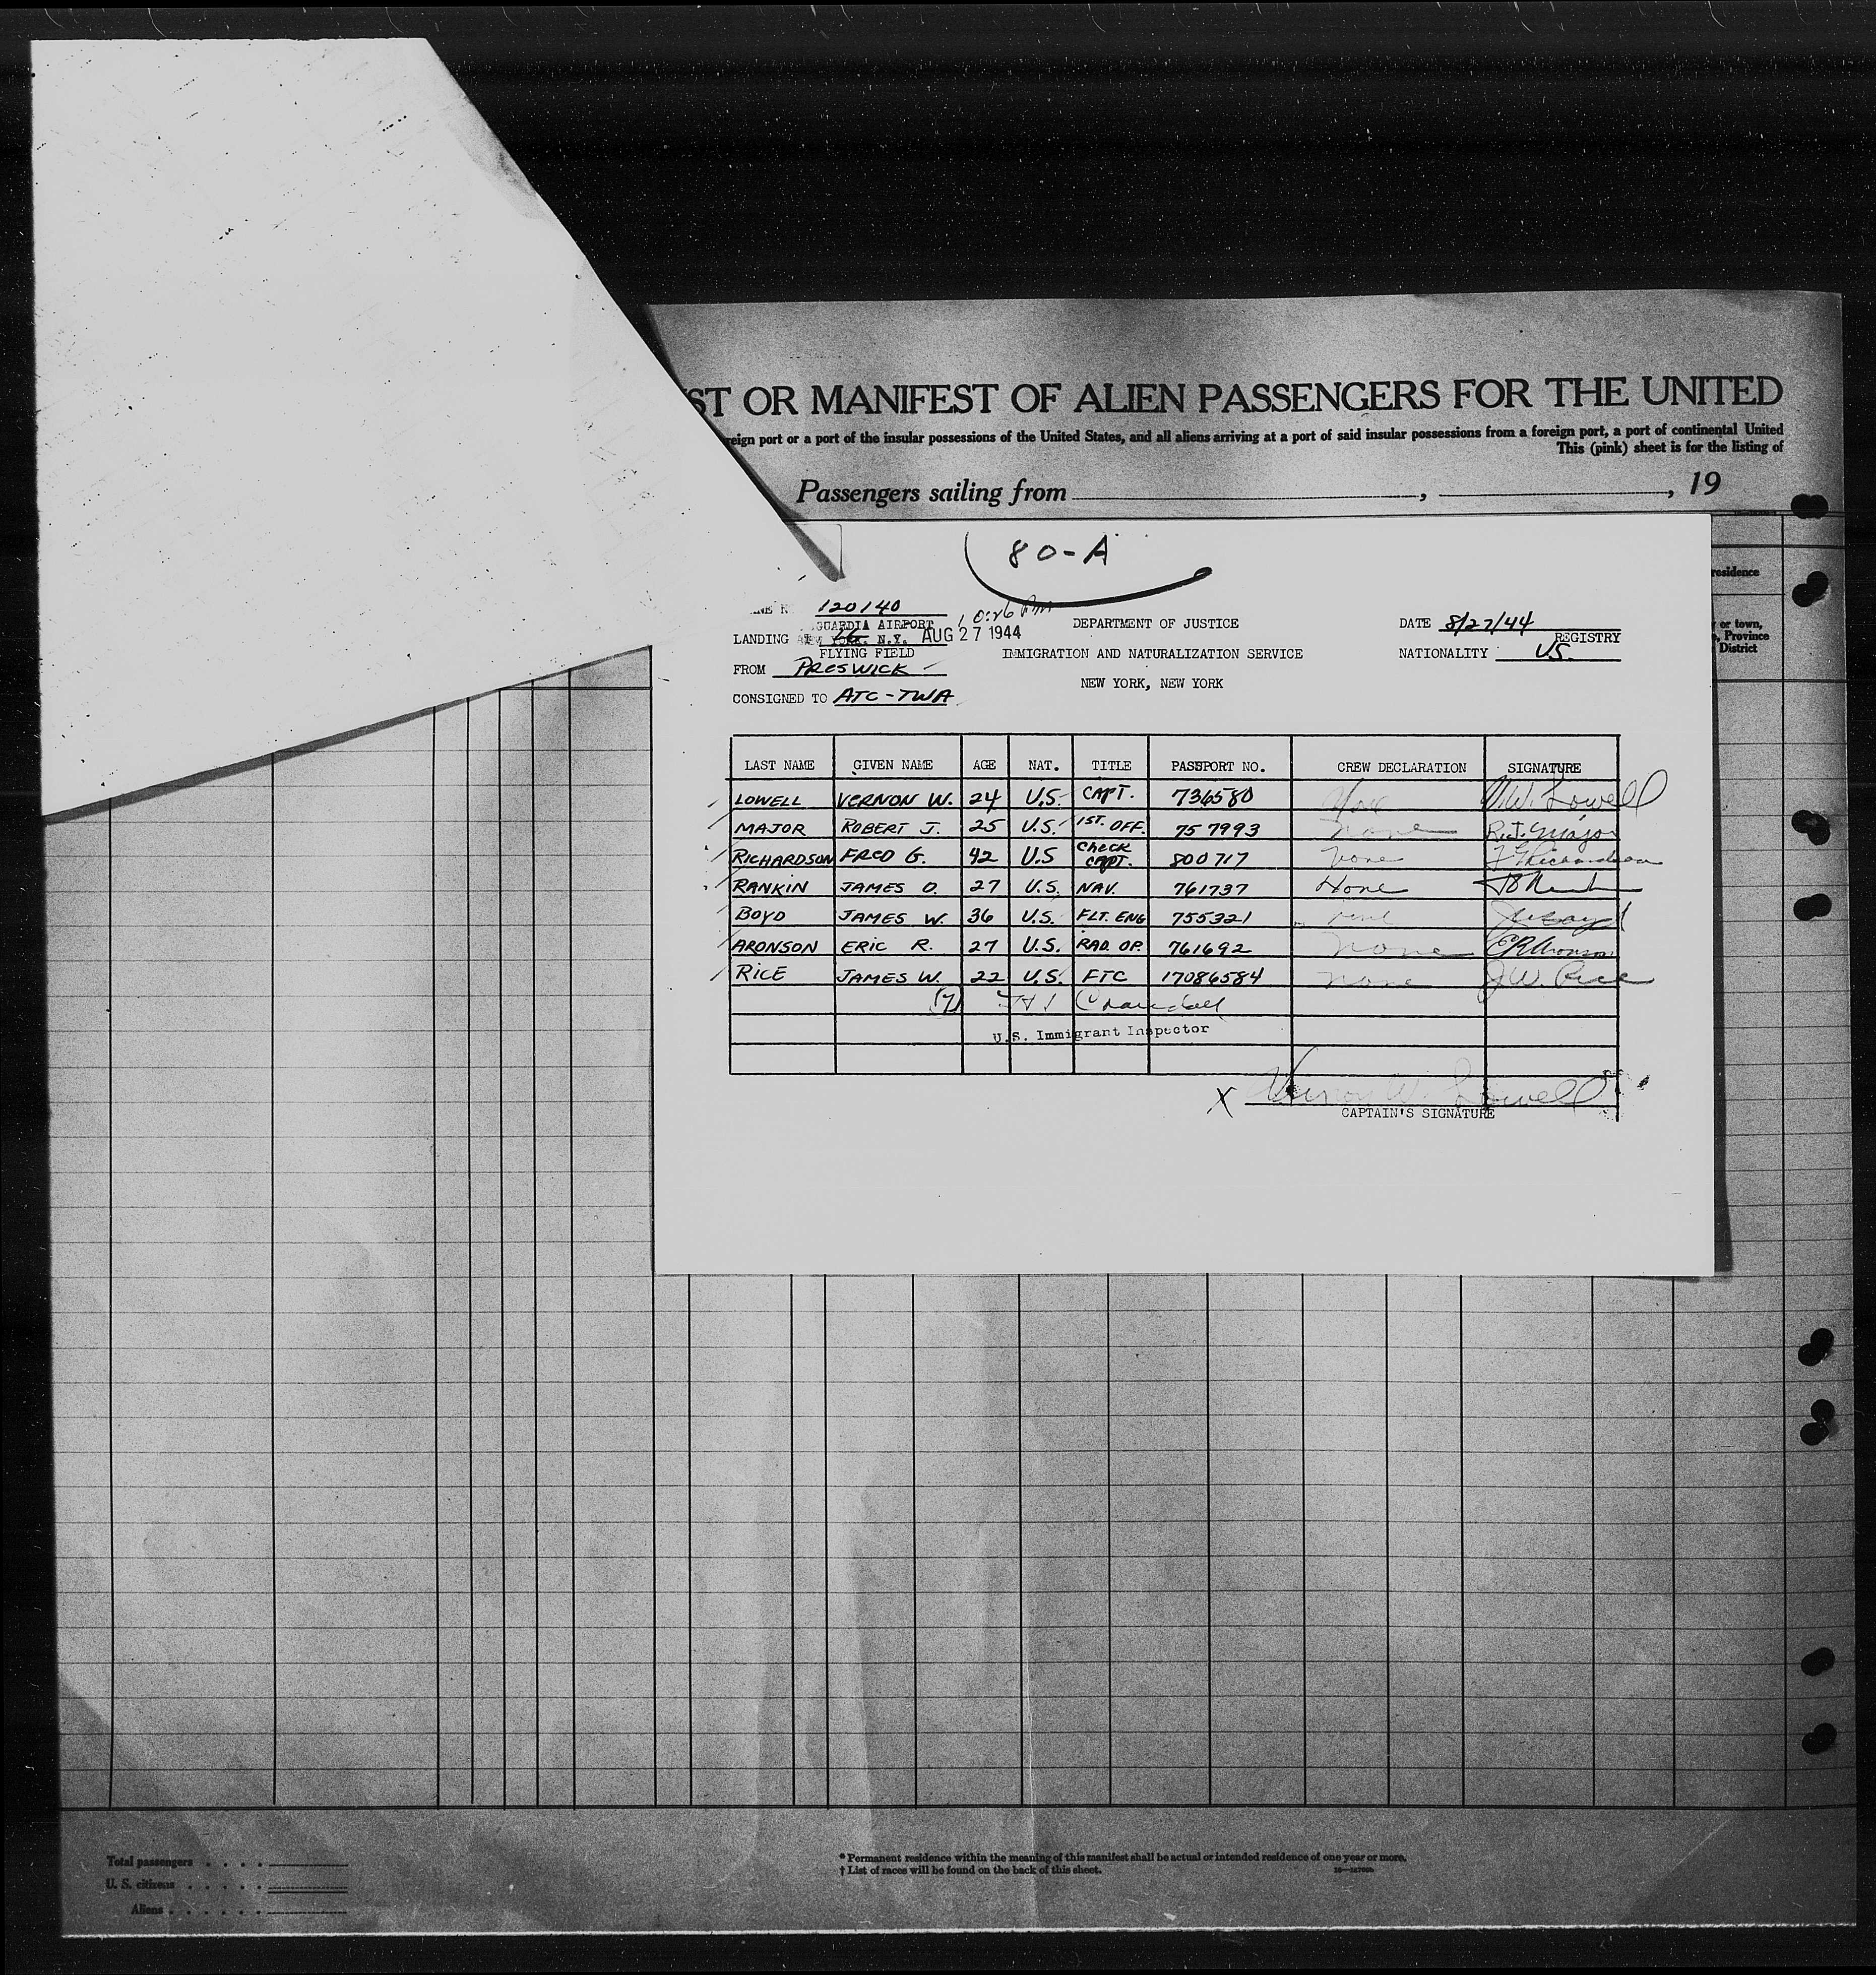 ST OR MANIFEST OF ALIEN PASSENGERS FOR THE UNITED
reign port or a port of the insular possessions of the United States, and all aliens arriving at a port of said insular possessions from a foreign port, a port of continental United
This (pink) sheet is for the listing of
Passengers sailing from , , 19
80-A
120140
GUARDIA AIRPORT 10:26 PM
LANDING NEW YORK, N.Y. AUG 27 1944
FLYING FIELD
FROM PRESWICK
CONSIGNED TO ATC-TWA
DEPARTMENT OF JUSTICE
IMMIGRATION AND NATURALIZATION SERVICE
NEW YORK, NEW YORK
DATE 8/27/44
REGISTRY
NATIONALITY U.S.
residence
or town,
Province
District
LAST NAME GIVEN NAME AGE NAT. TITLE PASSPORT NO. CREW DECLARATION SIGNATURE
LOWELL VERNON W. 24 U.S. CAPT. 736580 None V.W. Lowell
MAJOR ROBERT J. 25 U.S. 1ST. OFF. 757993 None R.J. Major
RICHARDSON FRED G. 42 U.S CHECK CAPT. 800717 None F G Richardson
RANKIN JAMES O. 27 U.S. NAV. 761737 None
BOYD JAMES W. 36 U.S. FLT. ENG 755321 None
ARONSON ERIC R. 27 U.S. RAD. OP. 761692 None E R Aronson
RICE JAMES W. 22 U.S. FTC 17086584 None J.W. Rice
(7) Crandall
U.S. Immigrant Inspector
X Vernon W. Lowell
CAPTAIN'S SIGNATURE
Total passengers . . . .
U. S. citizens . . . . .
Aliens . . . . . .
* Permanent residence within the meaning of this manifest shall be actual or intended residence of one year or more.
† List of races will be found on the back of this sheet.